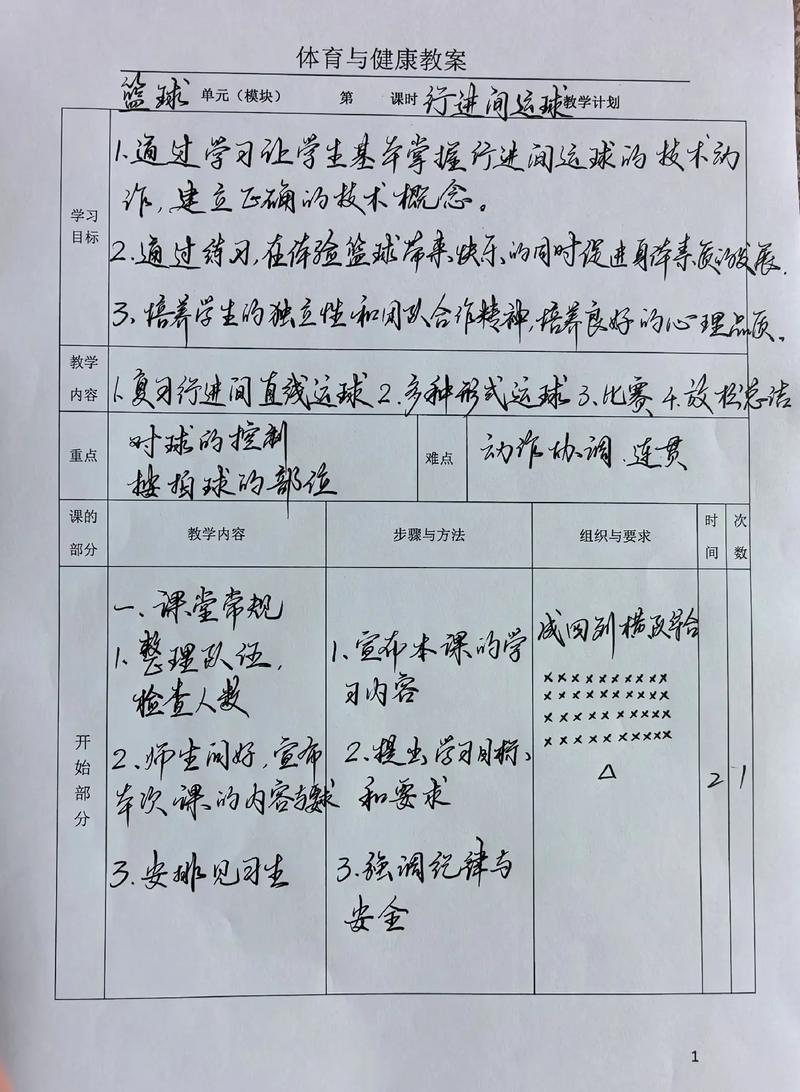 体育与健康教案
篮球 单元（模块） 第 课时 行进间运球 教学计划
学习
目标
1.通过学习让学生基本掌握行进间运球的技术动
作,建立正确的技术概念。
2.通过练习,在体验篮球带来快乐的同时促进身体素质的发展.
3、培养学生的独立性和团队合作精神,培养良好的心理品质。
教学
内容
1.复习行进间直线运球 2.多种形式运球 3、比赛 4.放松总结
重点
对球的控制
按拍球的部位
难点
动作协调.连贯
课的
部分
教学内容
步骤与方法
组织与要求
时
间
次
数
开
始
部
分
一、课堂常规
1.整理队伍,
检查人数
2.师生问好,宣布
本次课的内容与要求
3.安排见习生
1.宣布本课的学
习内容
2.提出学习目标、
和要求
3.强调纪律与
安全
成四列横队集合
×××××××××××
×××××××××××
×××××××××××
×××××××××××
△
2
1
1